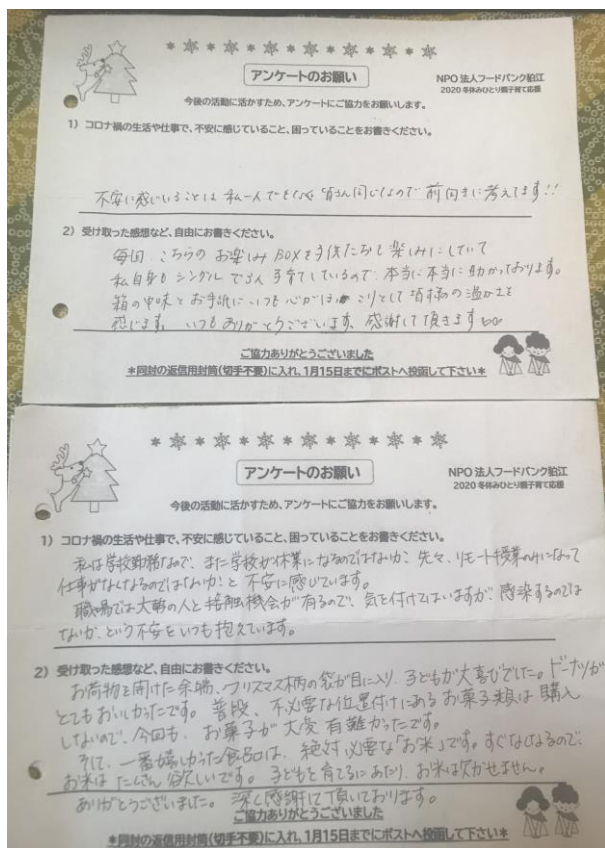 アンケートのお願い
NPO 法人フードバンク狛江
2020 冬休みひとり親子育て応援
今後の活動に活かすため、アンケートにご協力をお願いします。
1）コロナ禍の生活や仕事で、不安に感じていること、困っていることをお書きください。
不安に感じいることは 私一人でもなく 皆さん同じなので 前向きに考えてます!!
2）受け取った感想など、自由にお書きください。
毎回、こちらの お楽しみBOXを子供たちも楽しみにしていて
私自身も シングルで3人 子育てしているので、本当に本当に助かっております。
箱の中味とお手紙に いつも 心がほっこりとして 皆様の温かさを
感じます。いつもありがとうございます。感謝して頂きます
ご協力ありがとうございました
＊同封の返信用封筒(切手不要)に入れ、1月15日までにポストへ投函して下さい＊
アンケートのお願い
NPO 法人フードバンク狛江
2020 冬休みひとり親子育て応援
今後の活動に活かすため、アンケートにご協力をお願いします。
1）コロナ禍の生活や仕事で、不安に感じていること、困っていることをお書きください。
私は学校勤務なので、また学校が休業になるのではないか？先々、リモート授業のみになって
仕事がなくなるのではないか？と 不安に感じています。
職場では大勢の人と接触機会が有るので、気を付けてはいますが、感染するのでは
ないか、という不安をいつも抱えています。
2）受け取った感想など、自由にお書きください。
お荷物を開けた途端、クリスマス柄の袋が目に入り、子どもが大喜びでした。ドーナツが
とてもおいしかったです。普段、不必要な位置付けにあるお菓子類は購入
しないので、今回も、お菓子が大変有難かったです。
そして、一番嬉しかった食品は、絶対必要な「お米」です。すぐなくなるので、
お米はたくさん欲しいです。子どもを育てるにあたり、お米は欠かせません。
ありがとうございました。深く感謝して頂いております。
ご協力ありがとうございました
＊同封の返信用封筒(切手不要)に入れ、1月15日までにポストへ投函して下さい＊